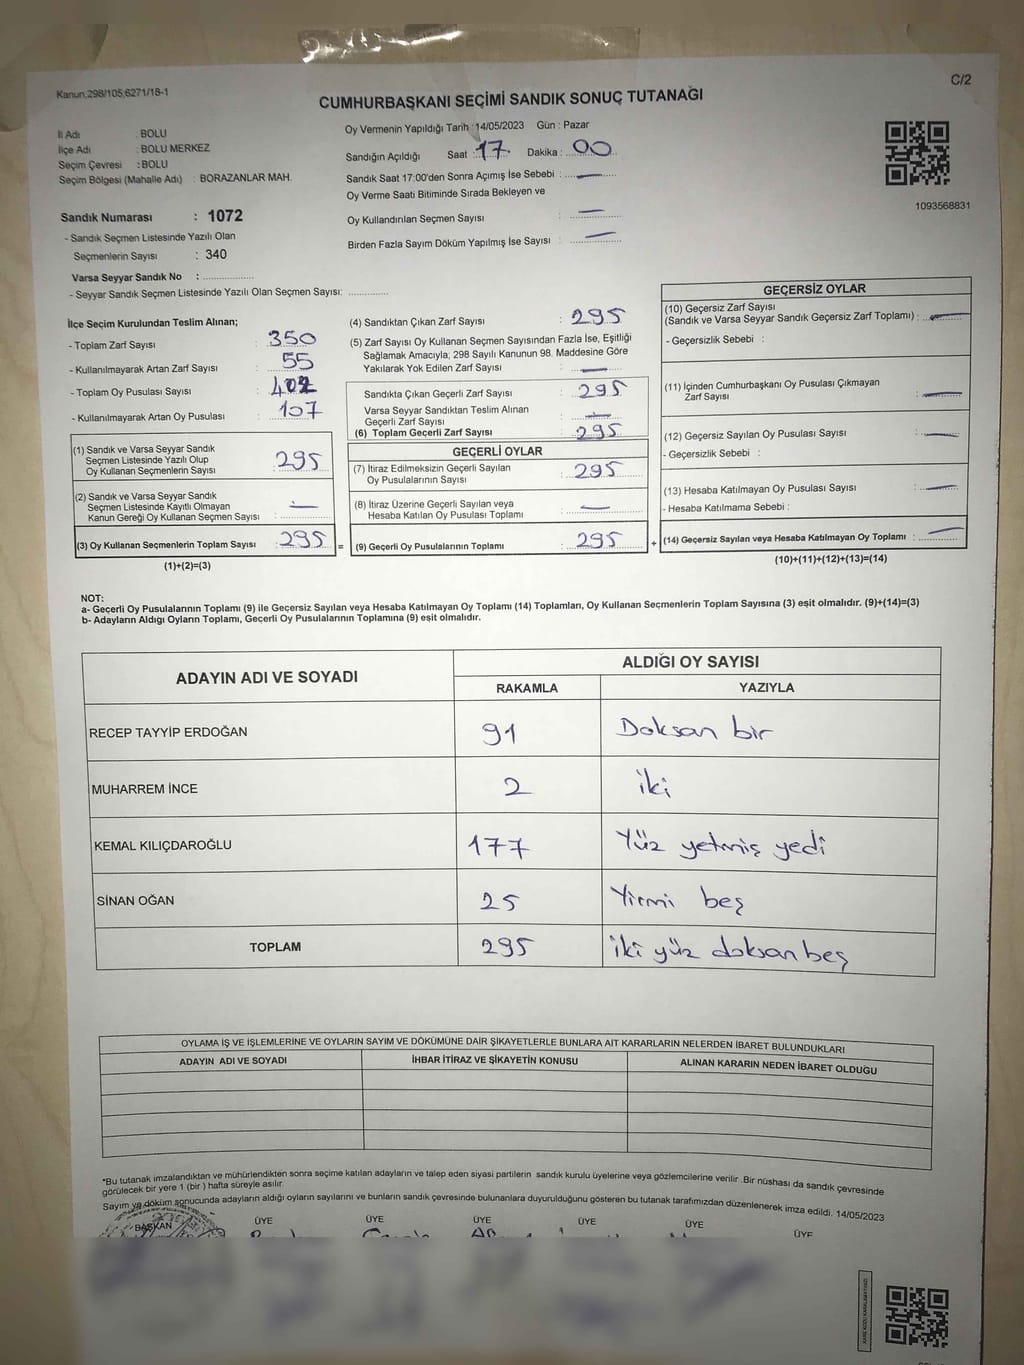 Kanun:298/105;6271/18-1
C/2
CUMHURBAŞKANI SEÇİMİ SANDIK SONUÇ TUTANAĞI
İl Adı : BOLU
İlçe Adı : BOLU MERKEZ
Seçim Çevresi : BOLU
Seçim Bölgesi (Mahalle Adı) : BORAZANLAR MAH.
Sandık Numarası : 1072
- Sandık Seçmen Listesinde Yazılı Olan
Seçmenlerin Sayısı : 340
Varsa Seyyar Sandık No : ..............
- Seyyar Sandık Seçmen Listesinde Yazılı Olan Seçmen Sayısı: ............
Oy Vermenin Yapıldığı Tarih :14/05/2023 Gün : Pazar
Sandığın Açıldığı Saat : 17 Dakika : 00
Sandık Saat 17:00'den Sonra Açımış İse Sebebi : —
Oy Verme Saati Bitiminde Sırada Bekleyen ve
Oy Kullandırılan Seçmen Sayısı : —
Birden Fazla Sayım Döküm Yapılmış İse Sayısı : —
1093568831
İlçe Seçim Kurulundan Teslim Alınan;
- Toplam Zarf Sayısı : 350
- Kullanılmayarak Artan Zarf Sayısı : 55
- Toplam Oy Pusulası Sayısı : 402
- Kullanılmayarak Artan Oy Pusulası : 107
(1) Sandık ve Varsa Seyyar Sandık
Seçmen Listesinde Yazılı Olup
Oy Kullanan Seçmenlerin Sayısı : 295
(2) Sandık ve Varsa Seyyar Sandık
Seçmen Listesinde Kayıtlı Olmayan
Kanun Gereği Oy Kullanan Seçmen Sayısı : —
(3) Oy Kullanan Seçmenlerin Toplam Sayısı : 295
(1)+(2)=(3)
(4) Sandıktan Çıkan Zarf Sayısı : 295
(5) Zarf Sayısı Oy Kullanan Seçmen Sayısından Fazla İse, Eşitliği
Sağlamak Amacıyla; 298 Sayılı Kanunun 98. Maddesine Göre
Yakılarak Yok Edilen Zarf Sayısı : —
Sandıkta Çıkan Geçerli Zarf Sayısı : 295
Varsa Seyyar Sandıktan Teslim Alınan
Geçerli Zarf Sayısı : —
(6) Toplam Geçerli Zarf Sayısı : 295
GEÇERLİ OYLAR
(7) İtiraz Edilmeksizin Geçerli Sayılan
Oy Pusulalarının Sayısı : 295
(8) İtiraz Üzerine Geçerli Sayılan veya
Hesaba Katılan Oy Pusulası Toplamı : —
= (9) Geçerli Oy Pusulalarının Toplamı : 295
GEÇERSİZ OYLAR
(10) Geçersiz Zarf Sayısı
(Sandık ve Varsa Seyyar Sandık Geçersiz Zarf Toplamı) : —
- Geçersizlik Sebebi :
(11) İçinden Cumhurbaşkanı Oy Pusulası Çıkmayan
Zarf Sayısı : —
(12) Geçersiz Sayılan Oy Pusulası Sayısı : —
- Geçersizlik Sebebi :
(13) Hesaba Katılmayan Oy Pusulası Sayısı : —
- Hesaba Katılmama Sebebi :
+ (14) Geçersiz Sayılan veya Hesaba Katılmayan Oy Toplamı : —
(10)+(11)+(12)+(13)=(14)
NOT:
a- Geçerli Oy Pusulalarının Toplamı (9) ile Geçersiz Sayılan veya Hesaba Katılmayan Oy Toplamı (14) Toplamları, Oy Kullanan Seçmenlerin Toplam Sayısına (3) eşit olmalıdır. (9)+(14)=(3)
b- Adayların Aldığı Oyların Toplamı, Geçerli Oy Pusulalarının Toplamına (9) eşit olmalıdır.
ADAYIN ADI VE SOYADI
ALDIĞI OY SAYISI
RAKAMLA YAZIYLA
RECEP TAYYİP ERDOĞAN 91 Doksan bir
MUHARREM İNCE 2 iki
KEMAL KILIÇDAROĞLU 177 Yüz yetmiş yedi
SİNAN OĞAN 25 Yirmi beş
TOPLAM 295 iki yüz doksan beş
OYLAMA İŞ VE İŞLEMLERİNE VE OYLARIN SAYIM VE DÖKÜMÜNE DAİR ŞİKAYETLERLE BUNLARA AİT KARARLARIN NELERDEN İBARET BULUNDUKLARI
ADAYIN ADI VE SOYADI İHBAR İTİRAZ VE ŞİKAYETİN KONUSU ALINAN KARARIN NEDEN İBARET OLDUĞU
*Bu tutanak imzalandıktan ve mühürlendikten sonra seçime katılan adayların ve talep eden siyasi partilerin sandık kurulu üyelerine veya gözlemcilerine verilir. Bir nüshası da sandık çevresinde
görülecek bir yere 1 (bir) hafta süreyle asılır.
Sayım ve döküm sonucunda adayların aldığı oyların sayılarını ve bunların sandık çevresinde bulunanlara duyurulduğunu gösteren bu tutanak tarafımızdan düzenlenerek imza edildi. 14/05/2023
BAŞKAN ÜYE ÜYE ÜYE ÜYE ÜYE ÜYE